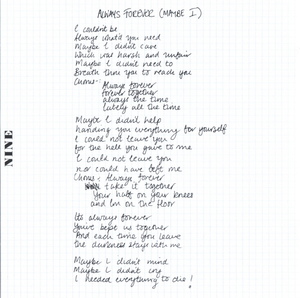 ALWAYS FOREVER (MAYBE I)
I couldn't be
Always what you need
Maybe I didn't care
Which was harsh and unfair
Maybe I didn't need to
Breath thru you to reach you
Chorus: Always forever
forever together
always the time
lately all the time
Maybe I didn't help
handing you everything for yourself
I could not leave you
for the hell you gave to me
I could not leave you
nor could have left me
Chorus: Always forever
take it together
Your half on your knees
and I'm on the floor
Its always forever
You've kept us together
And each time you leave
the darkness stays with me
Maybe I didn't mind
Maybe I didn't cry
I needed everything to die!
NINE